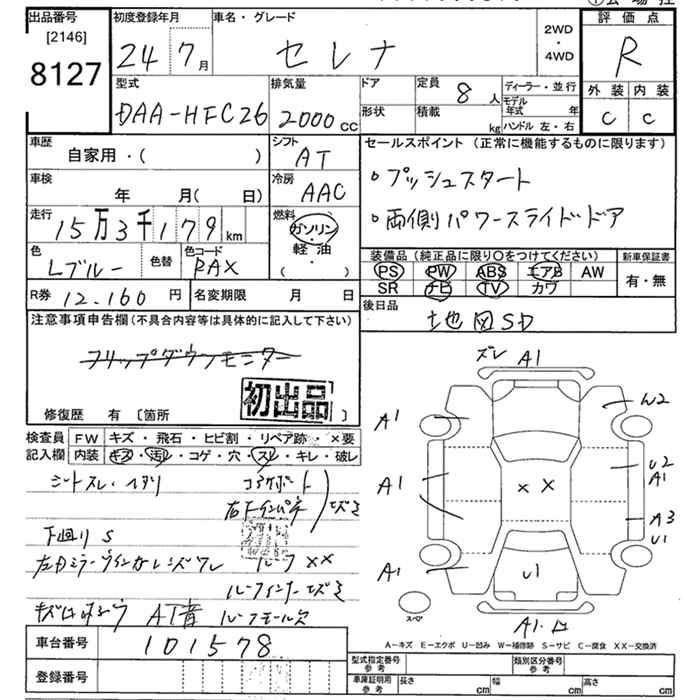 出品番号 初度登録年月 車名・グレード 2WD・4WD 評価点
[2146]
8127 24 7月 セレナ R
型式 排気量 ドア 定員 8人 ディーラー・並行 外装 内装
DAA-HFC26 2000cc 形状 積載 kg モデル年式 年 ハンドル 左・右 C C
車歴 自家用・( ) シフト AT
セールスポイント(正常に機能するものに限ります)
車検 年 月( 日) 冷房 AAC
・プッシュスタート
走行 15万3千179km 燃料 ガソリン・軽油・( )
・両側パワースライドドア
色 Lブルー 色替 色コード RAX
装備品(純正品に限り○をつけてください) 新車保証書
PS PW ABS エアB AW 有・無
SR ナビ TV カワ
R券 12.160円 名変期限 月 日
後日品 地図SD
注意事項申告欄(不具合内容等は具体的に記入して下さい)
フリップダウンモニター
初出品
修復歴 有 〔箇所 〕
検査員記入欄 FW キズ・飛石・ヒビ割・リペア跡・×要
内装 キズ・汚レ・コゲ・穴・スレ・キレ・破レ
シートスレ・ヘタリ
下回りS
ルーフ××
AT音 ルーフモール欠
車台番号 101578
登録番号
ズレ A1
A1 W2
A1 U2 A1
×× A3 U1
A1 U1
スペア
A1.ロ
A-キズ E-エクボ U-凹み W-補修跡 S-サビ C-腐食 XX-交換済
型式指定番号 参考 類別区分番号 参考
車庫証明用 参考 長さ cm 幅 cm 高さ cm